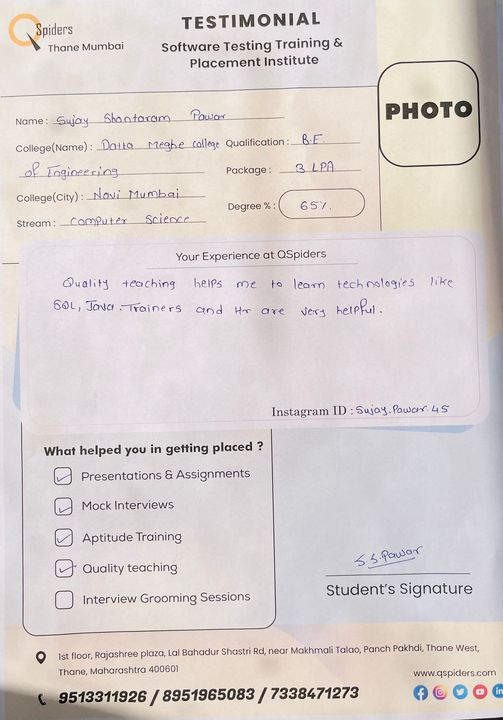 QSpiders
Thane Mumbai
TESTIMONIAL
Software Testing Training &
Placement Institute
PHOTO
Name : Sujay Shantaram Pawar
College(Name) : Datta Meghe college Qualification : B.E.
of Engineering
Package : 3 LPA
College(City) : Navi Mumbai
Degree % : 65%.
Stream : Computer Science
Your Experience at QSpiders
Quality teaching helps me to learn technologies like
SQL, Java. Trainers and Hr are very helpful.
Instagram ID : Sujay.Pawar.45
What helped you in getting placed ?
Presentations & Assignments
Mock Interviews
Aptitude Training
Quality teaching
Interview Grooming Sessions
S.S.Pawar
Student's Signature
1st floor, Rajashree plaza, Lal Bahadur Shastri Rd, near Makhmali Talao, Panch Pakhdi, Thane West,
Thane, Maharashtra 400601
www.qspiders.com
9513311926 / 8951965083 / 7338471273